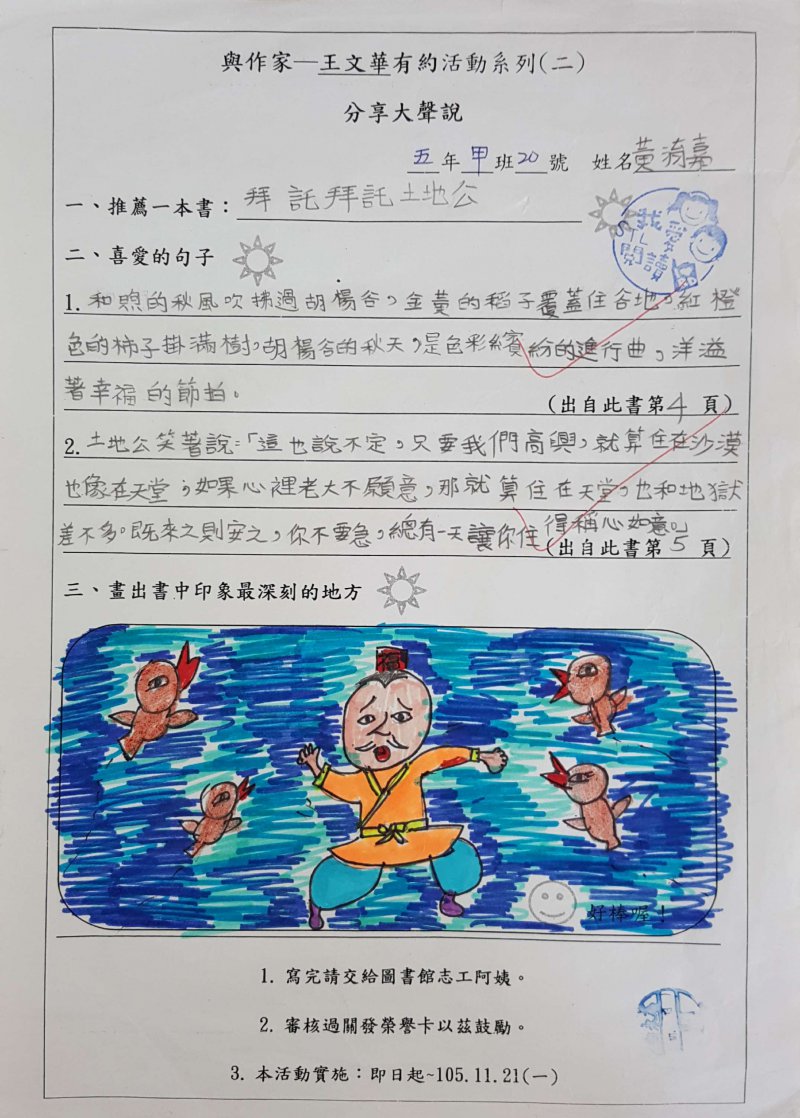 與作家─王文華有約活動系列(二)
分享大聲說
五年甲班20號 姓名黃渏嘉
一、推薦一本書：拜託拜託土地公
我愛
STL
閱讀
二、喜愛的句子
1.和煦的秋風吹拂過胡楊谷，金蔓的稻子覆蓋住谷地，紅橙
色的柿子掛滿樹，胡楊谷的秋天，是色彩繽紛的進行曲，洋溢
著幸福的節拍。
(出自此書第4頁)
2.土地公笑著說：「這也說不定，只要我們高興，就算住在沙漠
也像在天堂；如果心裡老大不願意，那就算住在天堂，也和地獄
差不多。既來之則安之，你不要急，總有一天讓你住得稱心如意。」
(出自此書第5頁)
三、畫出書中印象最深刻的地方
福
好棒喔！
1. 寫完請交給圖書館志工阿姨。
2. 審核過關發榮譽卡以茲鼓勵。
3. 本活動實施：即日起~105.11.21(一)